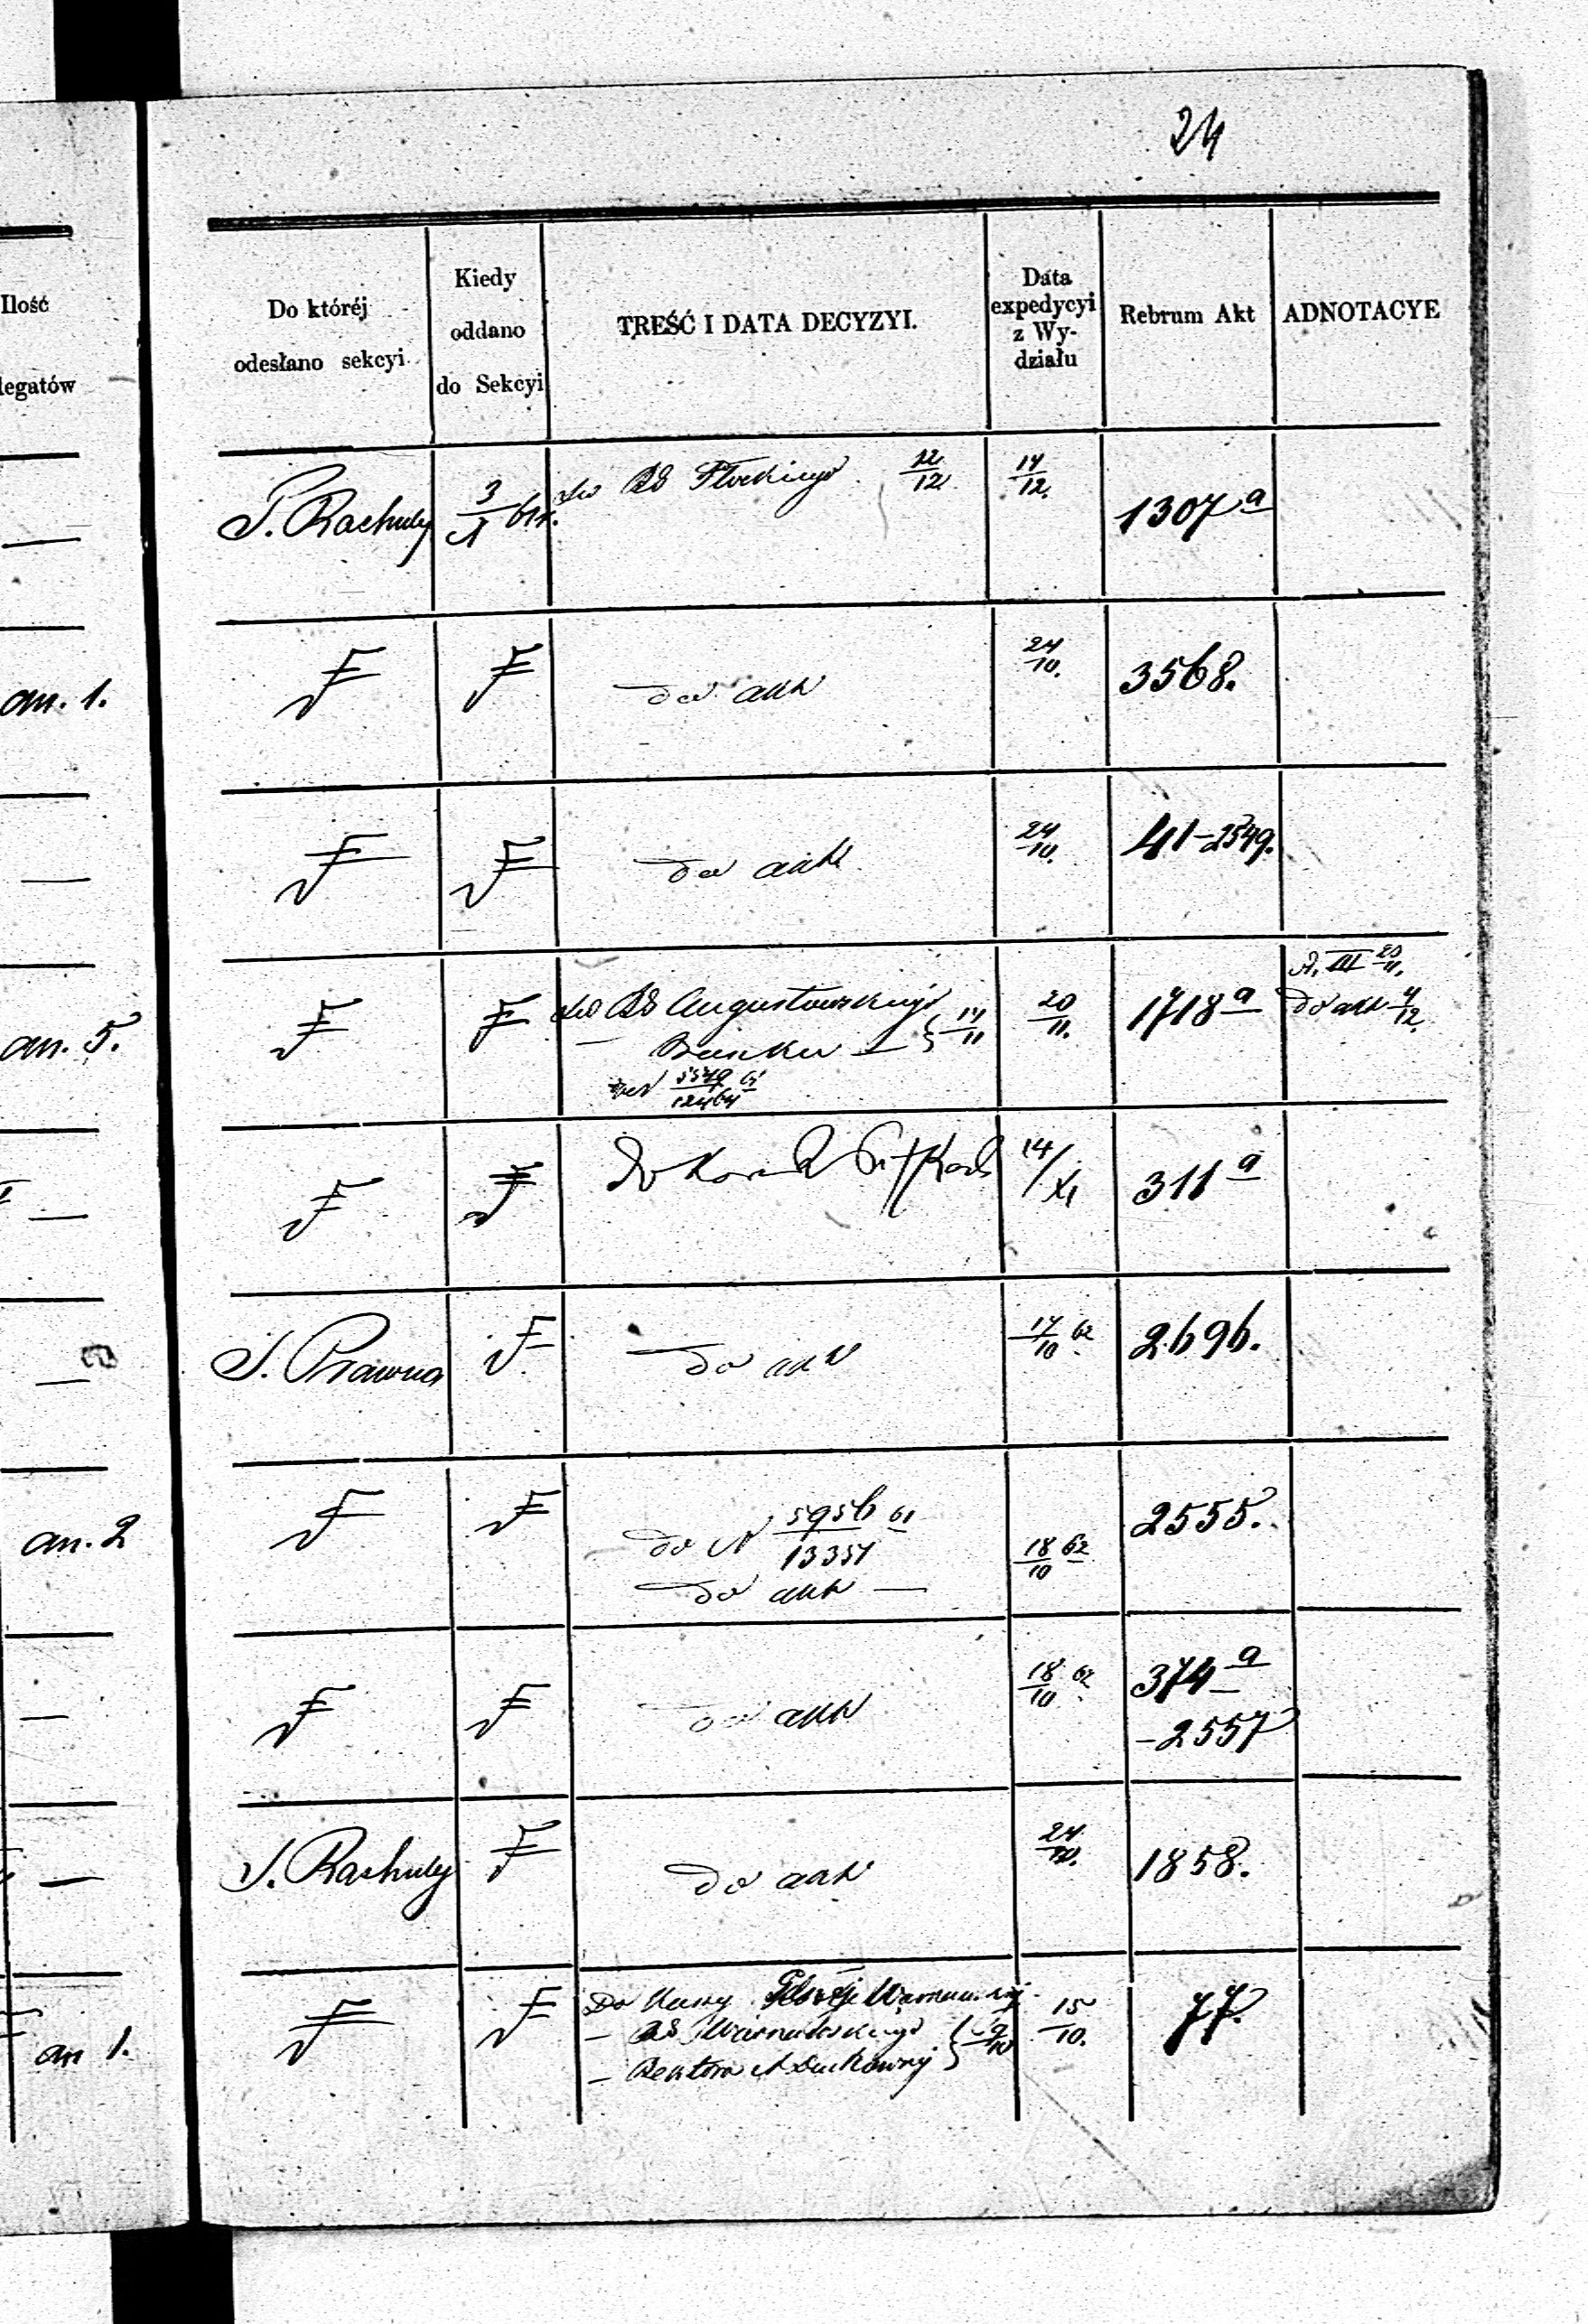 24
Ilość
legatów
Do któréj
odesłano sekcyi
Kiedy
oddano
do Sekcyi
TREŚĆ I DATA DECYZYI.
Data
expedycyi
z Wy-
działu
Rebrum Akt
ADNOTACYE
—
S. Rachuby
3/1 61 r.
do RG Płockiego 12/12
14/12.
1307 a
an. 1.
do akt
24/10.
3568.
—
do akt
24/10.
41-2549.
an. 5.
do RG Augustowskiego
— Banku — } 14/11
5549/12464 61
20/11.
1718 a
A. III 23/11.
do akt 4/12.
—
Do
14/XI
311 a
—
S. Prawna
do akt
17/10 62
2696.
an. 2
do N 5956/13351 61
do akt —
18/10 62
2555.
—
do akt
18/10 62
374 a
-2557
—
S. Rachuby
do akt
24/10.
1858.
an 1.
Do Kassy
— RG Warszawskiego } 9/10
— Rektora A Duchownej
15/10.
77.